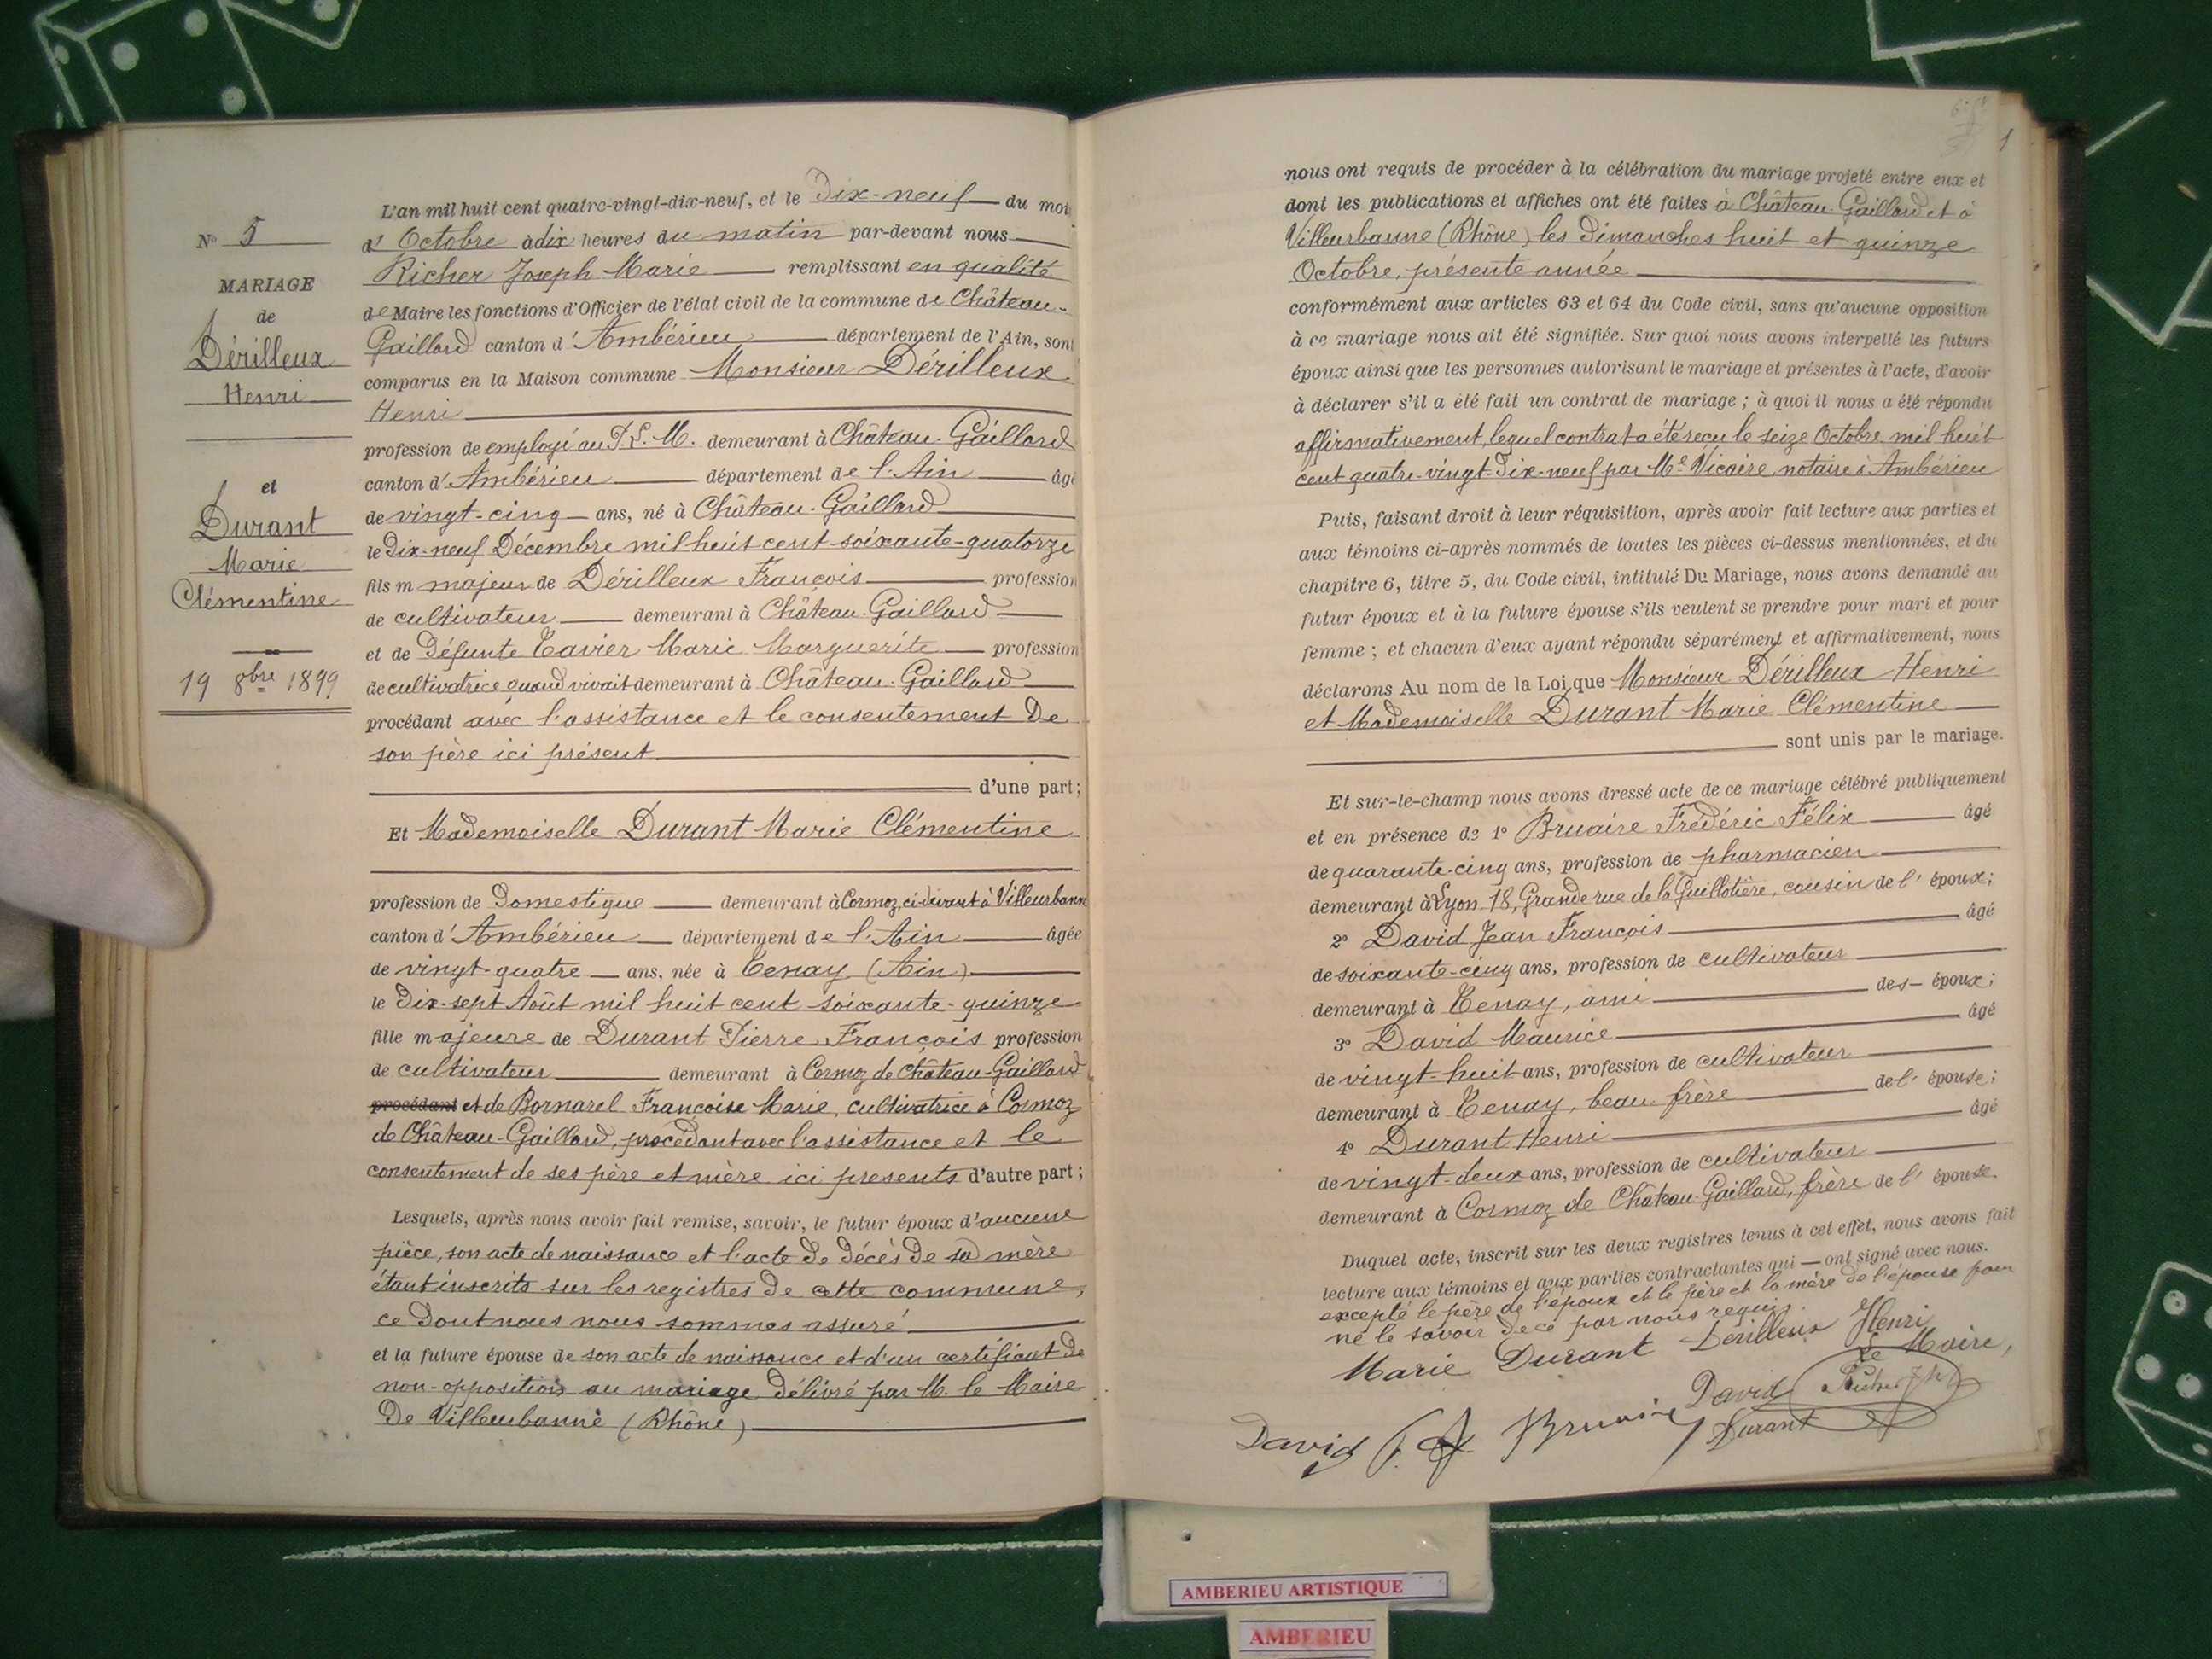 N° 5
MARIAGE
de
Dérilleux
Henri
et
Durant
Marie
Clémentine
19 8bre 1899
L'an mil huit cent quatre-vingt-dix-neuf, et le Dix-neuf du moi
d' Octobre à dix heures du matin par-devant nous
Richer Joseph Marie remplissant en qualité
de Maire les fonctions d'Officier de l'état civil de la commune de Château-
Gaillard canton d'Ambérieu département de l'Ain, sont
comparus en la Maison commune Monsieur Dérilleux
Henri
profession de employé au P.L.M. demeurant à Château-Gaillard
canton d'Ambérieu département de l'Ain âgé
de vingt-cinq ans, né à Château-Gaillard
le Dix-neuf Décembre mil huit cent soixante-quatorze
fils m majeur de Dérilleux François profession
de cultivateur demeurant à Château-Gaillard
et de Défunte Tavier Marie Marguerite profession
de cultivatrice quand vivait demeurant à Château-Gaillard
procédant avec l'assistance et le consentement De
son père ici présent
d'une part;
Et Mademoiselle Durant Marie Clémentine
profession de Domestique demeurant à Cormoz, ci-devant à Villeurbanne
canton d'Ambérieu département de l'Ain âgée
de vingt-quatre ans, née à Tenay (Ain)
le Dix-sept Août mil huit cent soixante-quinze
fille majeure de Durant Pierre François profession
de cultivateur demeurant à Cormoz de Château-Gaillard
procédant et de Bornarel Françoise Marie, cultivatrice à Cormoz
de Château-Gaillard, procédant avec l'assistance et le
consentement de ses père et mère ici presents d'autre part;
Lesquels, après nous avoir fait remise, savoir, le futur époux d'aucune
pièce, son acte de naissance et l'acte de décès de sa mère
étant inscrits sur les registres de cette commune,
ce dont nous nous sommes assuré
et la future épouse de son acte de naissance et d'un certificat de
non-opposition au mariage délivré par M. le Maire
De Villeurbanne (Rhône)
nous ont requis de procéder à la célébration du mariage projeté entre eux et
dont les publications et affiches ont été faites à Château-Gaillard et à
Villeurbanne (Rhône) les Dimanches huit et quinze
Octobre, présente année
conformément aux articles 63 et 64 du Code civil, sans qu'aucune opposition
à ce mariage nous ait été signifiée. Sur quoi nous avons interpellé les futurs
époux ainsi que les personnes autorisant le mariage et présentes à l'acte, d'avoir
à déclarer s'il a été fait un contrat de mariage; à quoi il nous a été répondu
affirmativement, lequel contrat a été reçu le seize Octobre mil huit
cent quatre-vingt-Dix-neuf par Me Vicaire, notaire à Ambérieu
Puis, faisant droit à leur réquisition, après avoir fait lecture aux parties et
aux témoins ci-après nommés de toutes les pièces ci-dessus mentionnées, et du
chapitre 6, titre 5, du Code civil, intitulé Du Mariage, nous avons demandé au
futur époux et à la future épouse s'ils veulent se prendre pour mari et pour
femme; et chacun d'eux ayant répondu séparément et affirmativement, nous
déclarons Au nom de la Loi que Monsieur Dérilleux Henri
et Mademoiselle Durant Marie Clémentine
sont unis par le mariage.
Et sur-le-champ nous avons dressé acte de ce mariage célébré publiquement
et en présence de 1° Bruaire Frédéric Félix âgé
de quarante-cinq ans, profession de pharmacien
demeurant à Lyon, 18, Grande rue de la Guillotière, cousin de l' époux;
2° David Jean François âgé
de soixante-cinq ans, profession de cultivateur
demeurant à Tenay, ami des époux;
3° David Maurice âgé
de vingt-huit ans, profession de cultivateur
demeurant à Tenay, beau-frère de l' épouse;
4° Durant Henri âgé
de vingt-deux ans, profession de cultivateur
demeurant à Cormoz de Château-Gaillard, frère de l' épouse.
Duquel acte, inscrit sur les deux registres tenus à cet effet, nous avons fait
lecture aux témoins et aux parties contractantes qui ont signé avec nous.
excepté le père de l'époux et le père et la mère de l'épouse pour
ne le savoir de ce par nous requis.
Marie Durant Dérilleux Henri
Le Maire,
David Richer Jh
David J. F. Bruaire Durant
AMBERIEU ARTISTIQUE
AMBERIEU